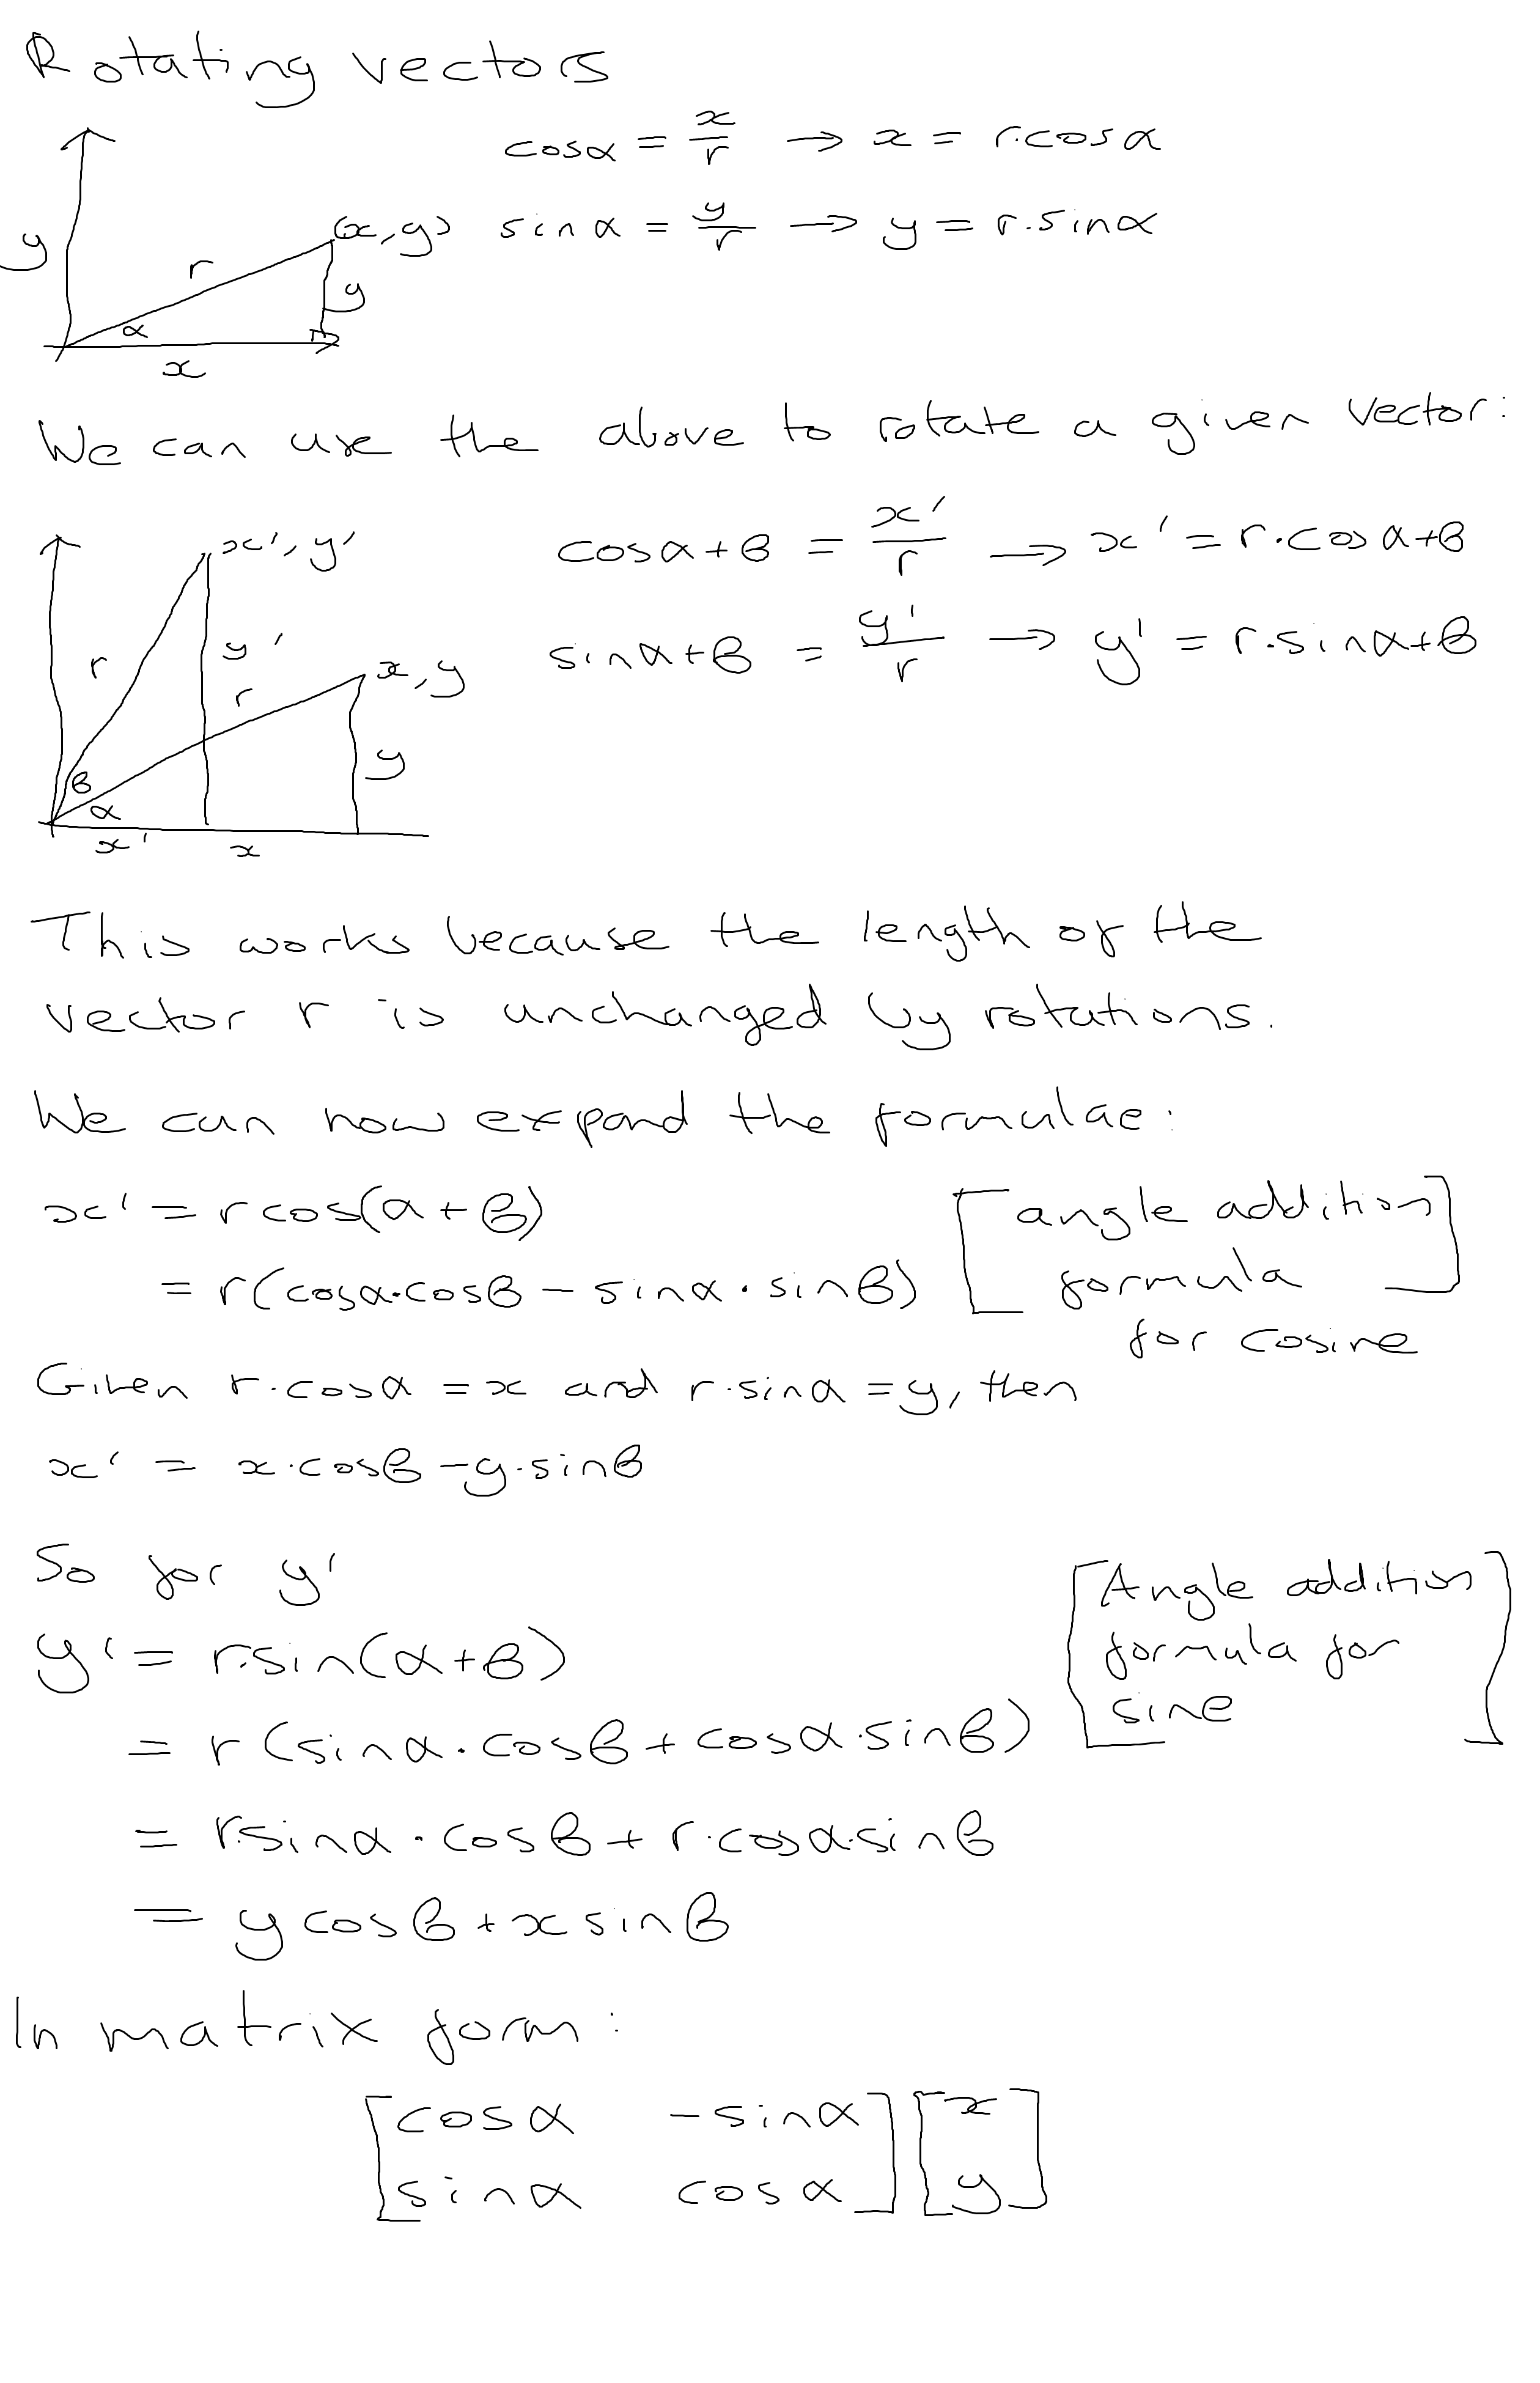 Rotating vectors
cosα = x/r → x = r.cosα
(x,y) sinα = y/r → y = r.sinα
y
r
y
α
x
We can use the above to rotate a given vector:
x', y'
cosα+β = x'/r → x' = r.cosα+β
sinα+β = y'/r → y' = r.sinα+β
y'
r
x,y
r
y
β
α
x'
x
This works because the length of the
vector r is unchanged by rotations.
We can now expand the formulae:
x' = rcos(α+β) [angle addition
= r(cosα.cosβ - sinα.sinβ) formula]
for cosine
Given r.cosα = x and r.sinα = y, then
x' = x.cosβ - y.sinβ
So for y' [Angle addition
y' = r.sin(α+β) formula for
= r(sinα.cosβ + cosα.sinβ) sine]
= r.sinα.cosβ + r.cosα.sinβ
= ycosβ + xsinβ
In matrix form:
[cosα -sinα] [x]
[sinα cosα] [y]